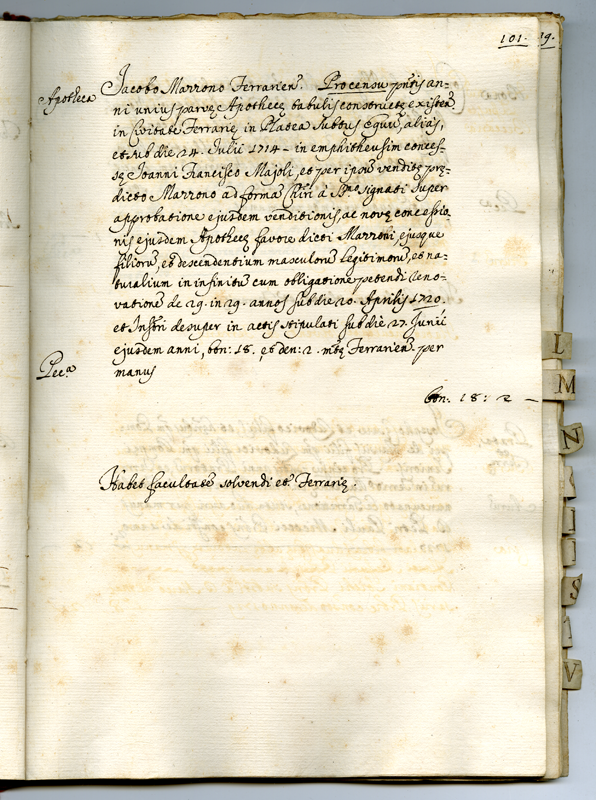 101. 19.
Apotheca
Jacobo Marrono Ferrarien. Pro censu pntis an-
ni unius parvę Apothecę babilis constructę existen.
in Civitate Ferrarię in Platea subtus Equū, aliàs,
et sub die 24. Julii 1714 - in emphitheusim conces-
sę Joanni Francisco Majoli, et per ipsū venditę prę-
dicto Marrono ad formā Chiri à S.mo signati super
approbatione ejusdem venditionis, ac novę concessio-
nis ejusdem Apothecę favore dicti Marroni, ejusque
filiorū, et descendentium masculorū legitimorū, et na-
turalium in infinitū cum obligatione petendi reno-
vationē de 29. in 29. annos sub die 20. Aprilis 1720.
et Instri desuper in actis stipulati sub die 27. Junii
ejusdem anni, bon: 18. et den: 2. mtę Ferrarien. per
manus
Pec.a
bon: 18: 2 —
Habet facultatē solvendi et Ferrarię.
L
M
N
S
V